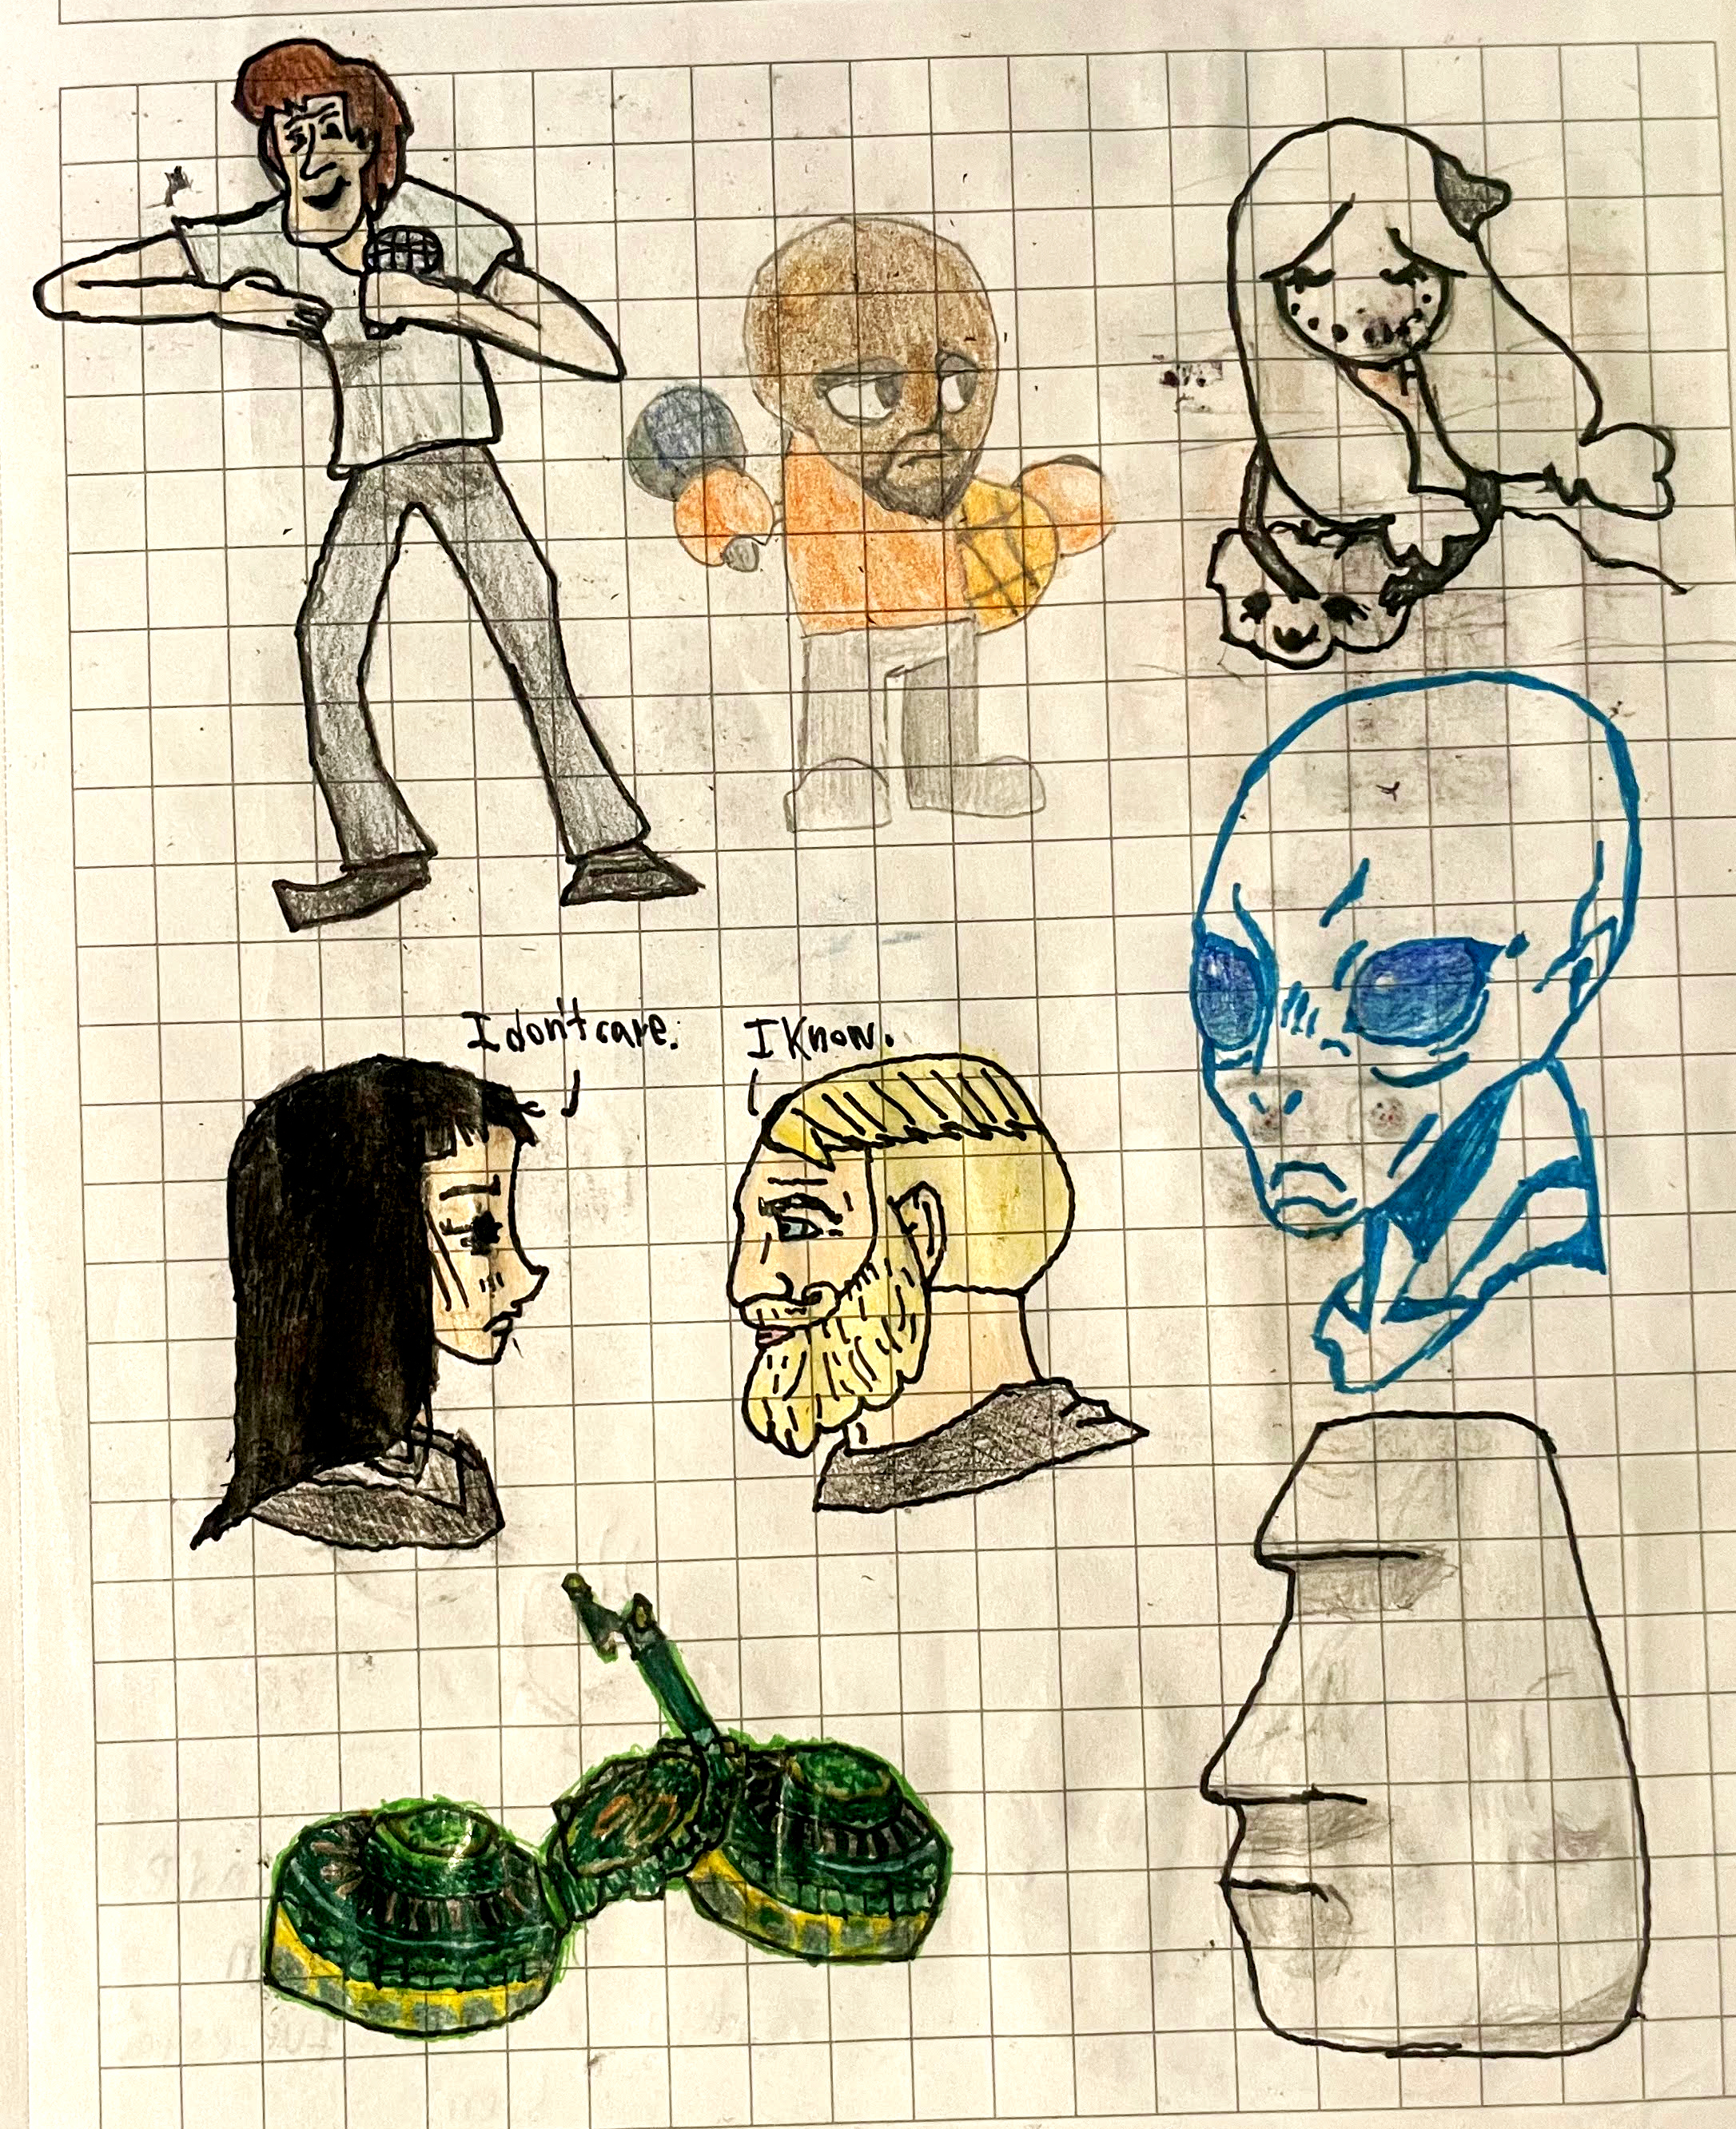 I don't care.
I Know.